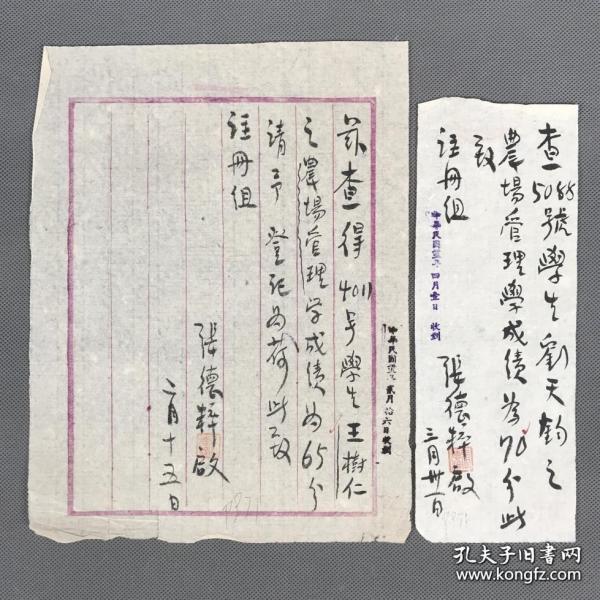 茲查得4011号學生王樹仁
之農場管理学成績為65分
請予登記為荷此致
註冊組
張德粹啟
二月十五日
中華民國
貳月拾六日收到
查5088號學生劉天鈞之
農場管理學成績為70分此
致
註冊組
中華民國 四月壹日 收到
張德粹啟
三月卅一日
孔夫子旧书网
www.kongfz.com